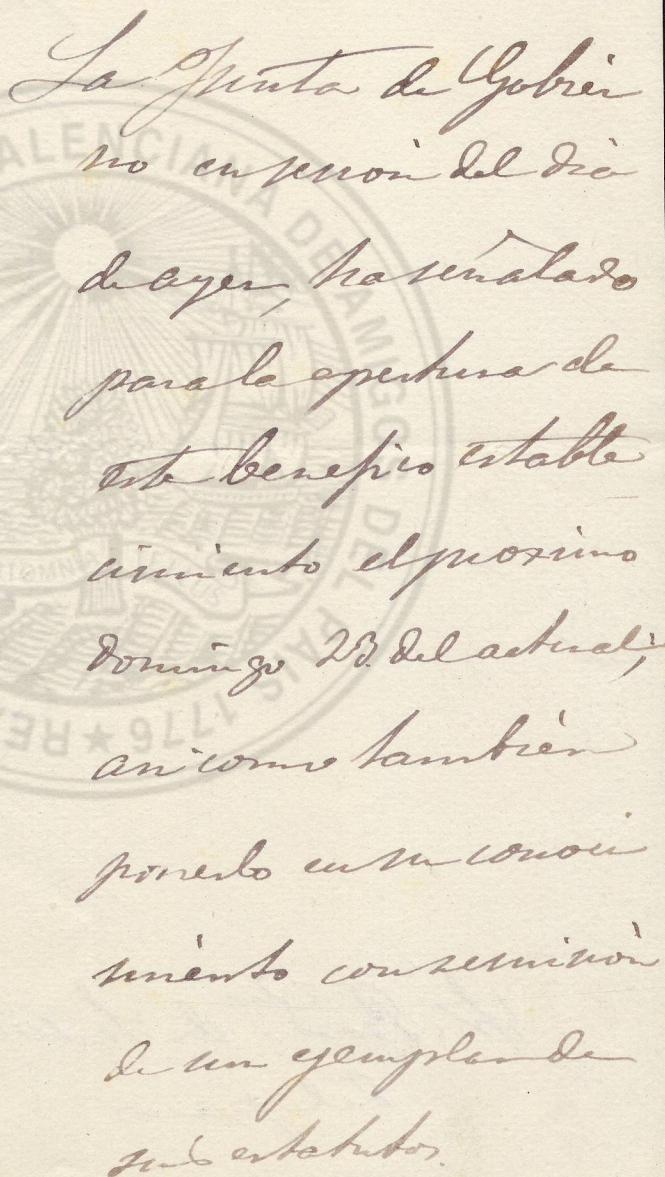 La Junta de Gobier
no en sesion del dia
de ayer, ha señalado
para la apertura de
este benefico estable
cimiento el proximo
domingo 23. del actual;
asi como tambien
ponerlo en su conoci
miento con remision
de un ejemplar de
sus estatutos.
VALENCIANA DE AMIGOS DEL PAIS 1776 ★ REA